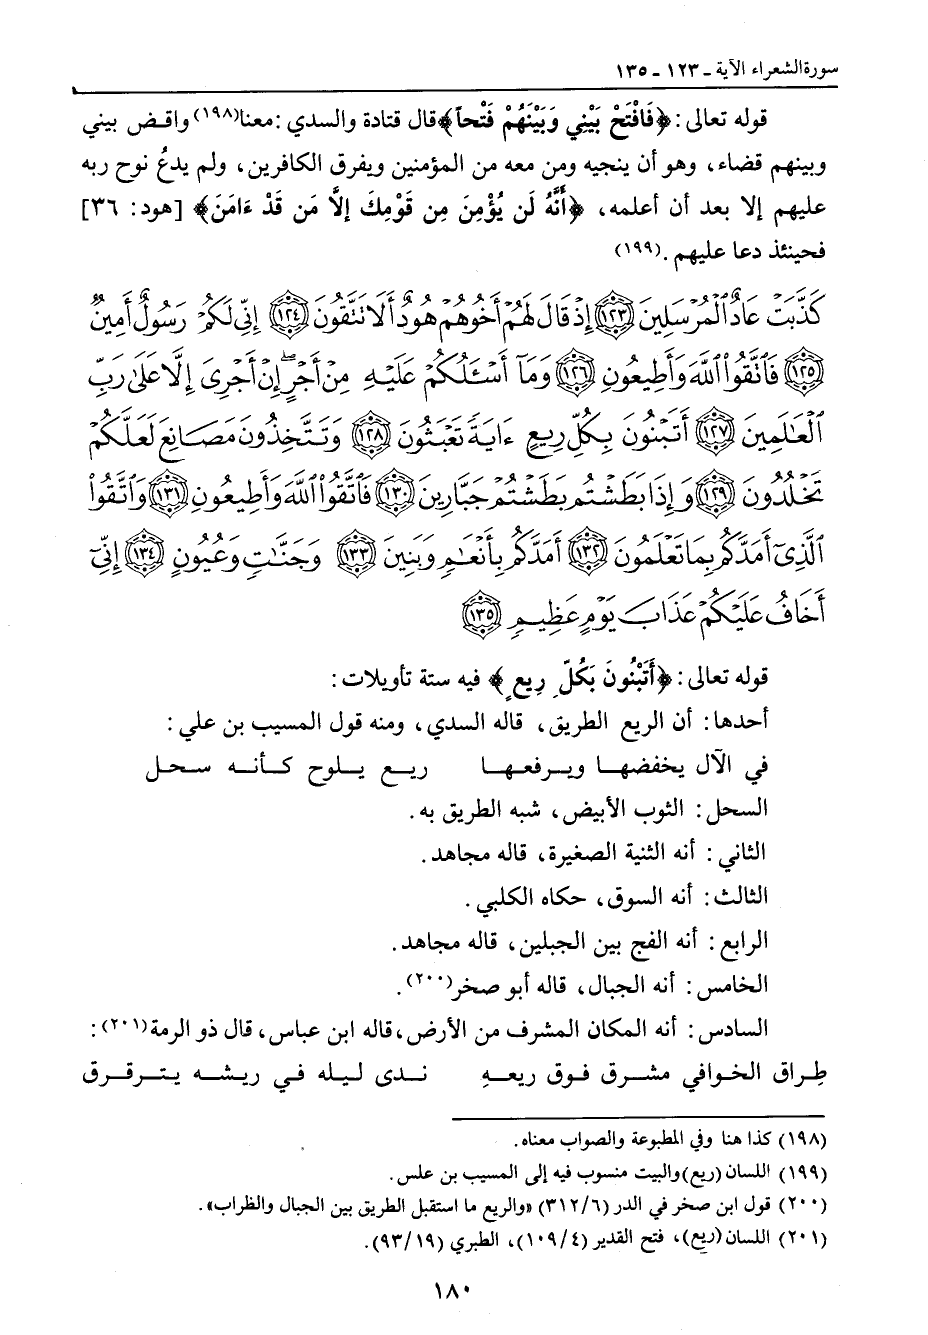 سورة الشعراء الآية ـ ١٢٣ ـ ١٣٥
قوله تعالى: ﴿فَافْتَحْ بَيْنِي وَبَيْنَهُمْ فَتْحاً﴾ قال قتادة والسدي: معنا(١٩٨) واقض بيني
وبينهم قضاء، وهو أن ينجيه ومن معه من المؤمنين ويفرق الكافرين، ولم يدعُ نوح ربه
عليهم إلا بعد أن أعلمه، ﴿أَنَّهُ لَن يُؤْمِنَ مِن قَوْمِكَ إلاَّ مَن قَدْ ءَامَنَ﴾ [هود: ٣٦]
فحينئذ دعا عليهم.(١٩٩)
كَذَّبَتْ عَادٌ ٱلْمُرْسَلِينَ ١٢٣ إِذْ قَالَ لَهُمْ أَخُوهُمْ هُودٌ أَلَا تَتَّقُونَ ١٢٤ إِنِّى لَكُمْ رَسُولٌ أَمِينٌ
١٢٥ فَٱتَّقُوا۟ ٱللَّهَ وَأَطِيعُونِ ١٢٦ وَمَآ أَسْـَٔلُكُمْ عَلَيْهِ مِنْ أَجْرٍ ۖ إِنْ أَجْرِىَ إِلَّا عَلَىٰ رَبِّ
ٱلْعَـٰلَمِينَ ١٢٧ أَتَبْنُونَ بِكُلِّ رِيعٍ ءَايَةً تَعْبَثُونَ ١٢٨ وَتَتَّخِذُونَ مَصَانِعَ لَعَلَّكُمْ
تَخْلُدُونَ ١٢٩ وَإِذَا بَطَشْتُم بَطَشْتُمْ جَبَّارِينَ ١٣٠ فَٱتَّقُوا۟ ٱللَّهَ وَأَطِيعُونِ ١٣١ وَٱتَّقُوا۟
ٱلَّذِىٓ أَمَدَّكُم بِمَا تَعْلَمُونَ ١٣٢ أَمَدَّكُم بِأَنْعَـٰمٍ وَبَنِينَ ١٣٣ وَجَنَّـٰتٍ وَعُيُونٍ ١٣٤ إِنِّىٓ
أَخَافُ عَلَيْكُمْ عَذَابَ يَوْمٍ عَظِيمٍ ١٣٥
قوله تعالى: ﴿أَتَبْنُونَ بَكُلِّ رِيعٍ﴾ فيه ستة تأويلات:
أحدها: أن الريع الطريق، قاله السدي، ومنه قول المسيب بن علي:
في الآل يخفضهـا ويـرفعهـا ريـع يـلوح كـأنـه سـحـل
السحل: الثوب الأبيض، شبه الطريق به.
الثاني: أنه الثنية الصغيرة، قاله مجاهد.
الثالث: أنه السوق، حكاه الكلبي.
الرابع: أنه الفج بين الجبلين، قاله مجاهد.
الخامس: أنه الجبال، قاله أبو صخر(٢٠٠).
السادس: أنه المكان المشرف من الأرض، قاله ابن عباس، قال ذو الرمة(٢٠١):
طِراق الخوافي مشـرق فـوق ريعـهِ نـدى ليـله فـي ريشـه يتـرقـرق
(١٩٨) كذا هنا وفي المطبوعة والصواب معناه.
(١٩٩) اللسان (ريع) والبيت منسوب فيه إلى المسيب بن علس.
(٢٠٠) قول ابن صخر في الدر (٣١٢/٦) «والريع ما استقبل الطريق بين الجبال والظراب».
(٢٠١) اللسان (ريع)، فتح القدير (١٠٩/٤)، الطبري (٩٣/١٩).
١٨٠